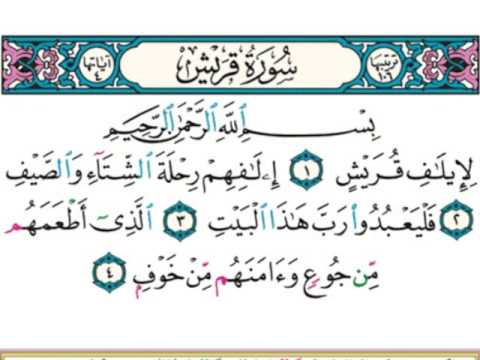 آياتها ٤ سُورَةُ قُرَيْشٍ ترتيبها ١٠٦
بِسْمِ ٱللَّهِ ٱلرَّحْمَٰنِ ٱلرَّحِيمِ
لِإِيلَٰفِ قُرَيْشٍ ١ إِۦلَٰفِهِمْ رِحْلَةَ ٱلشِّتَآءِ وَٱلصَّيْفِ
٢ فَلْيَعْبُدُوا۟ رَبَّ هَٰذَا ٱلْبَيْتِ ٣ ٱلَّذِىٓ أَطْعَمَهُم
مِّن جُوعٍ وَءَامَنَهُم مِّنْ خَوْفٍۭ ٤